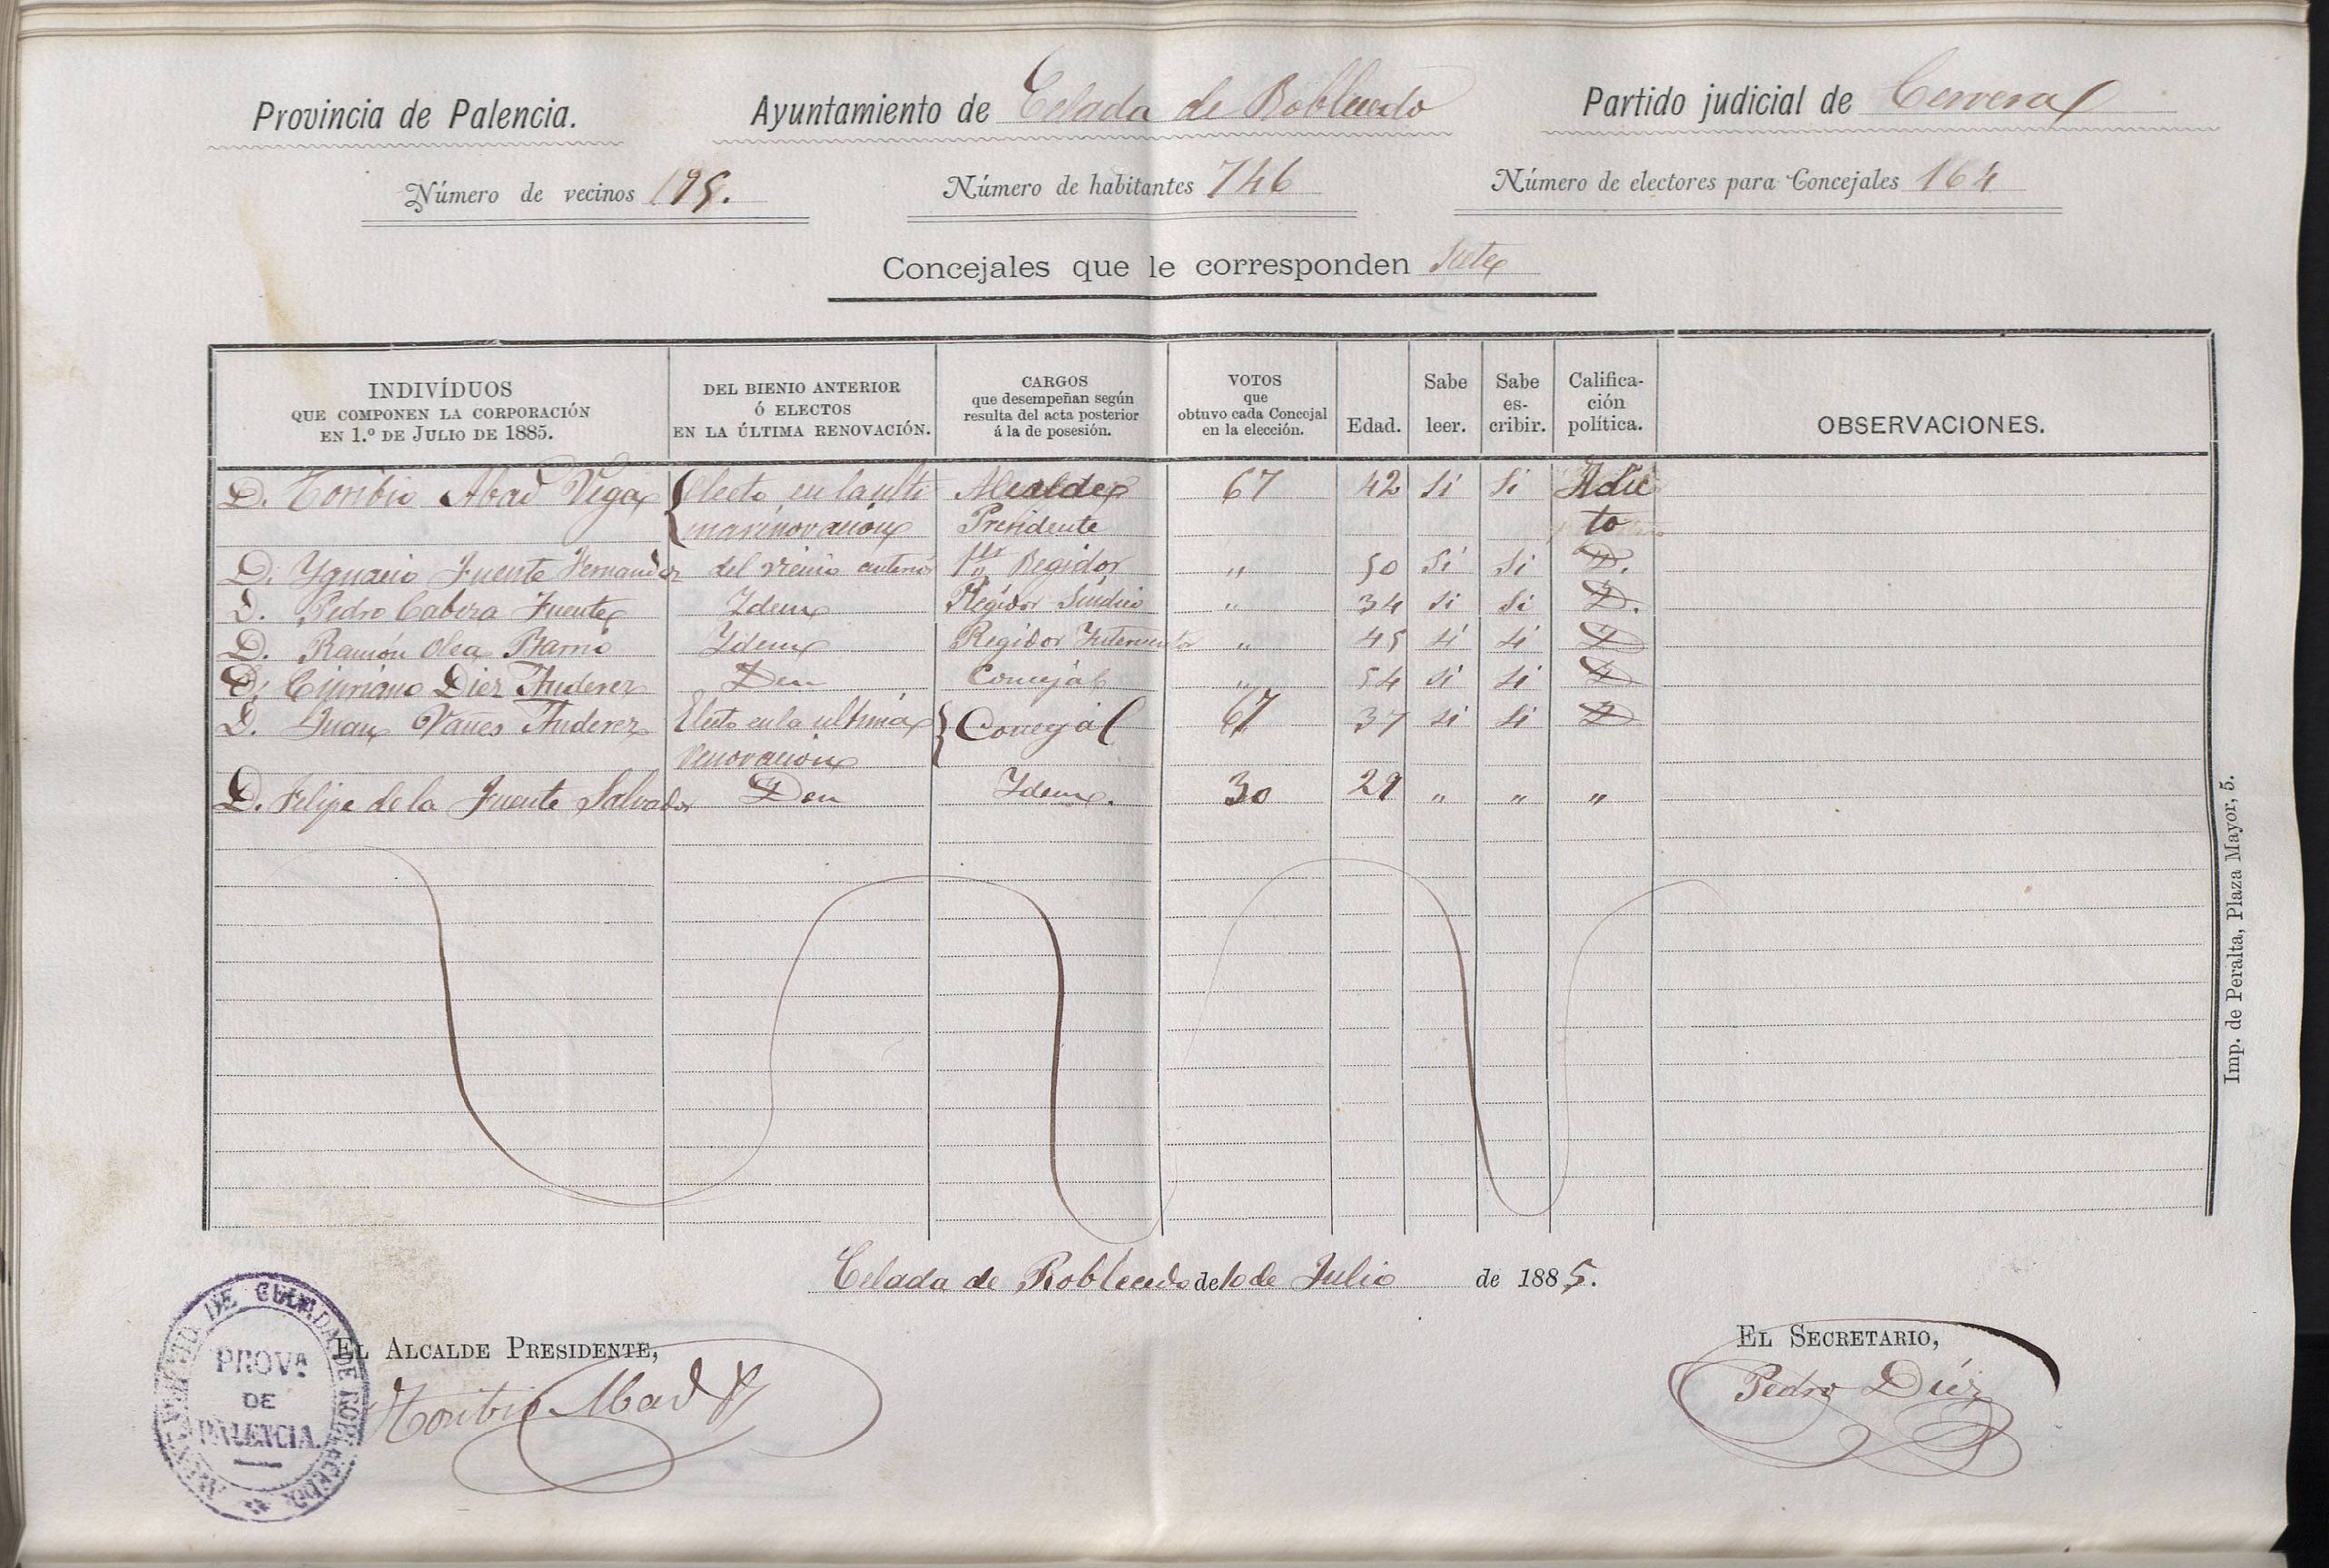 Provincia de Palencia. Ayuntamiento de Celada de Roblecedo Partido judicial de Cervera
Número de vecinos 195. Número de habitantes 746 Número de electores para Concejales 164
Concejales que le corresponden Siete
INDIVÍDUOS QUE COMPONEN LA CORPORACIÓN EN 1.º DE JULIO DE 1885. DEL BIENIO ANTERIOR Ó ELECTOS EN LA ÚLTIMA RENOVACIÓN. CARGOS que desempeñan según resulta del acta posterior á la de posesión. VOTOS que obtuvo cada Concejal en la elección. Edad. Sabe leer. Sabe es- cribir. Califica- ción política. OBSERVACIONES.
D. Toribio Abad Vega Electo en la ulti Alcalde 67 42 Si Si Adic
ma rinovacion Presidente to
D. Ygnacio Fuente Hernandez del vienio anterior 1er Regidor " 50 Si Si D.
D. Pedro Cabera Fuente Ydem Regidor Sindico " 34 Si Si D.
D. Ramón Olea Barrio Ydem Regidor Interventor " 45 Si Si D
D. Cipriano Diez Anderez Den Concejal " 54 Si Si D
D. Juan Vañes Anderez Electo en la ultima Concejal 67 37 Si Si D
renovacion
D. Felipe de la Fuente Salvador Den Ydem. 30 29 " " "
Celada de Roblecedo de 10 de Julio de 1885.
EL ALCALDE PRESIDENTE, EL SECRETARIO,
Toribio Abad Pedro Díez
AYUNTAMIENTO DE CELADA DE ROBLECEDO
PROVª
DE
PALENCIA.
Imp. de Peralta, Plaza Mayor, 5.